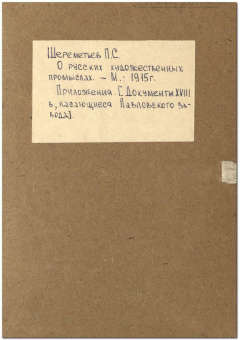 Шереметьев П.С.
О русских художественных
промыслах. – М.: 1915г.
Приложения. [Документы XVIII
в., касающиеся Павловского за-
вода].